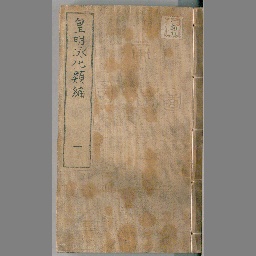 皇明泳化類編
一